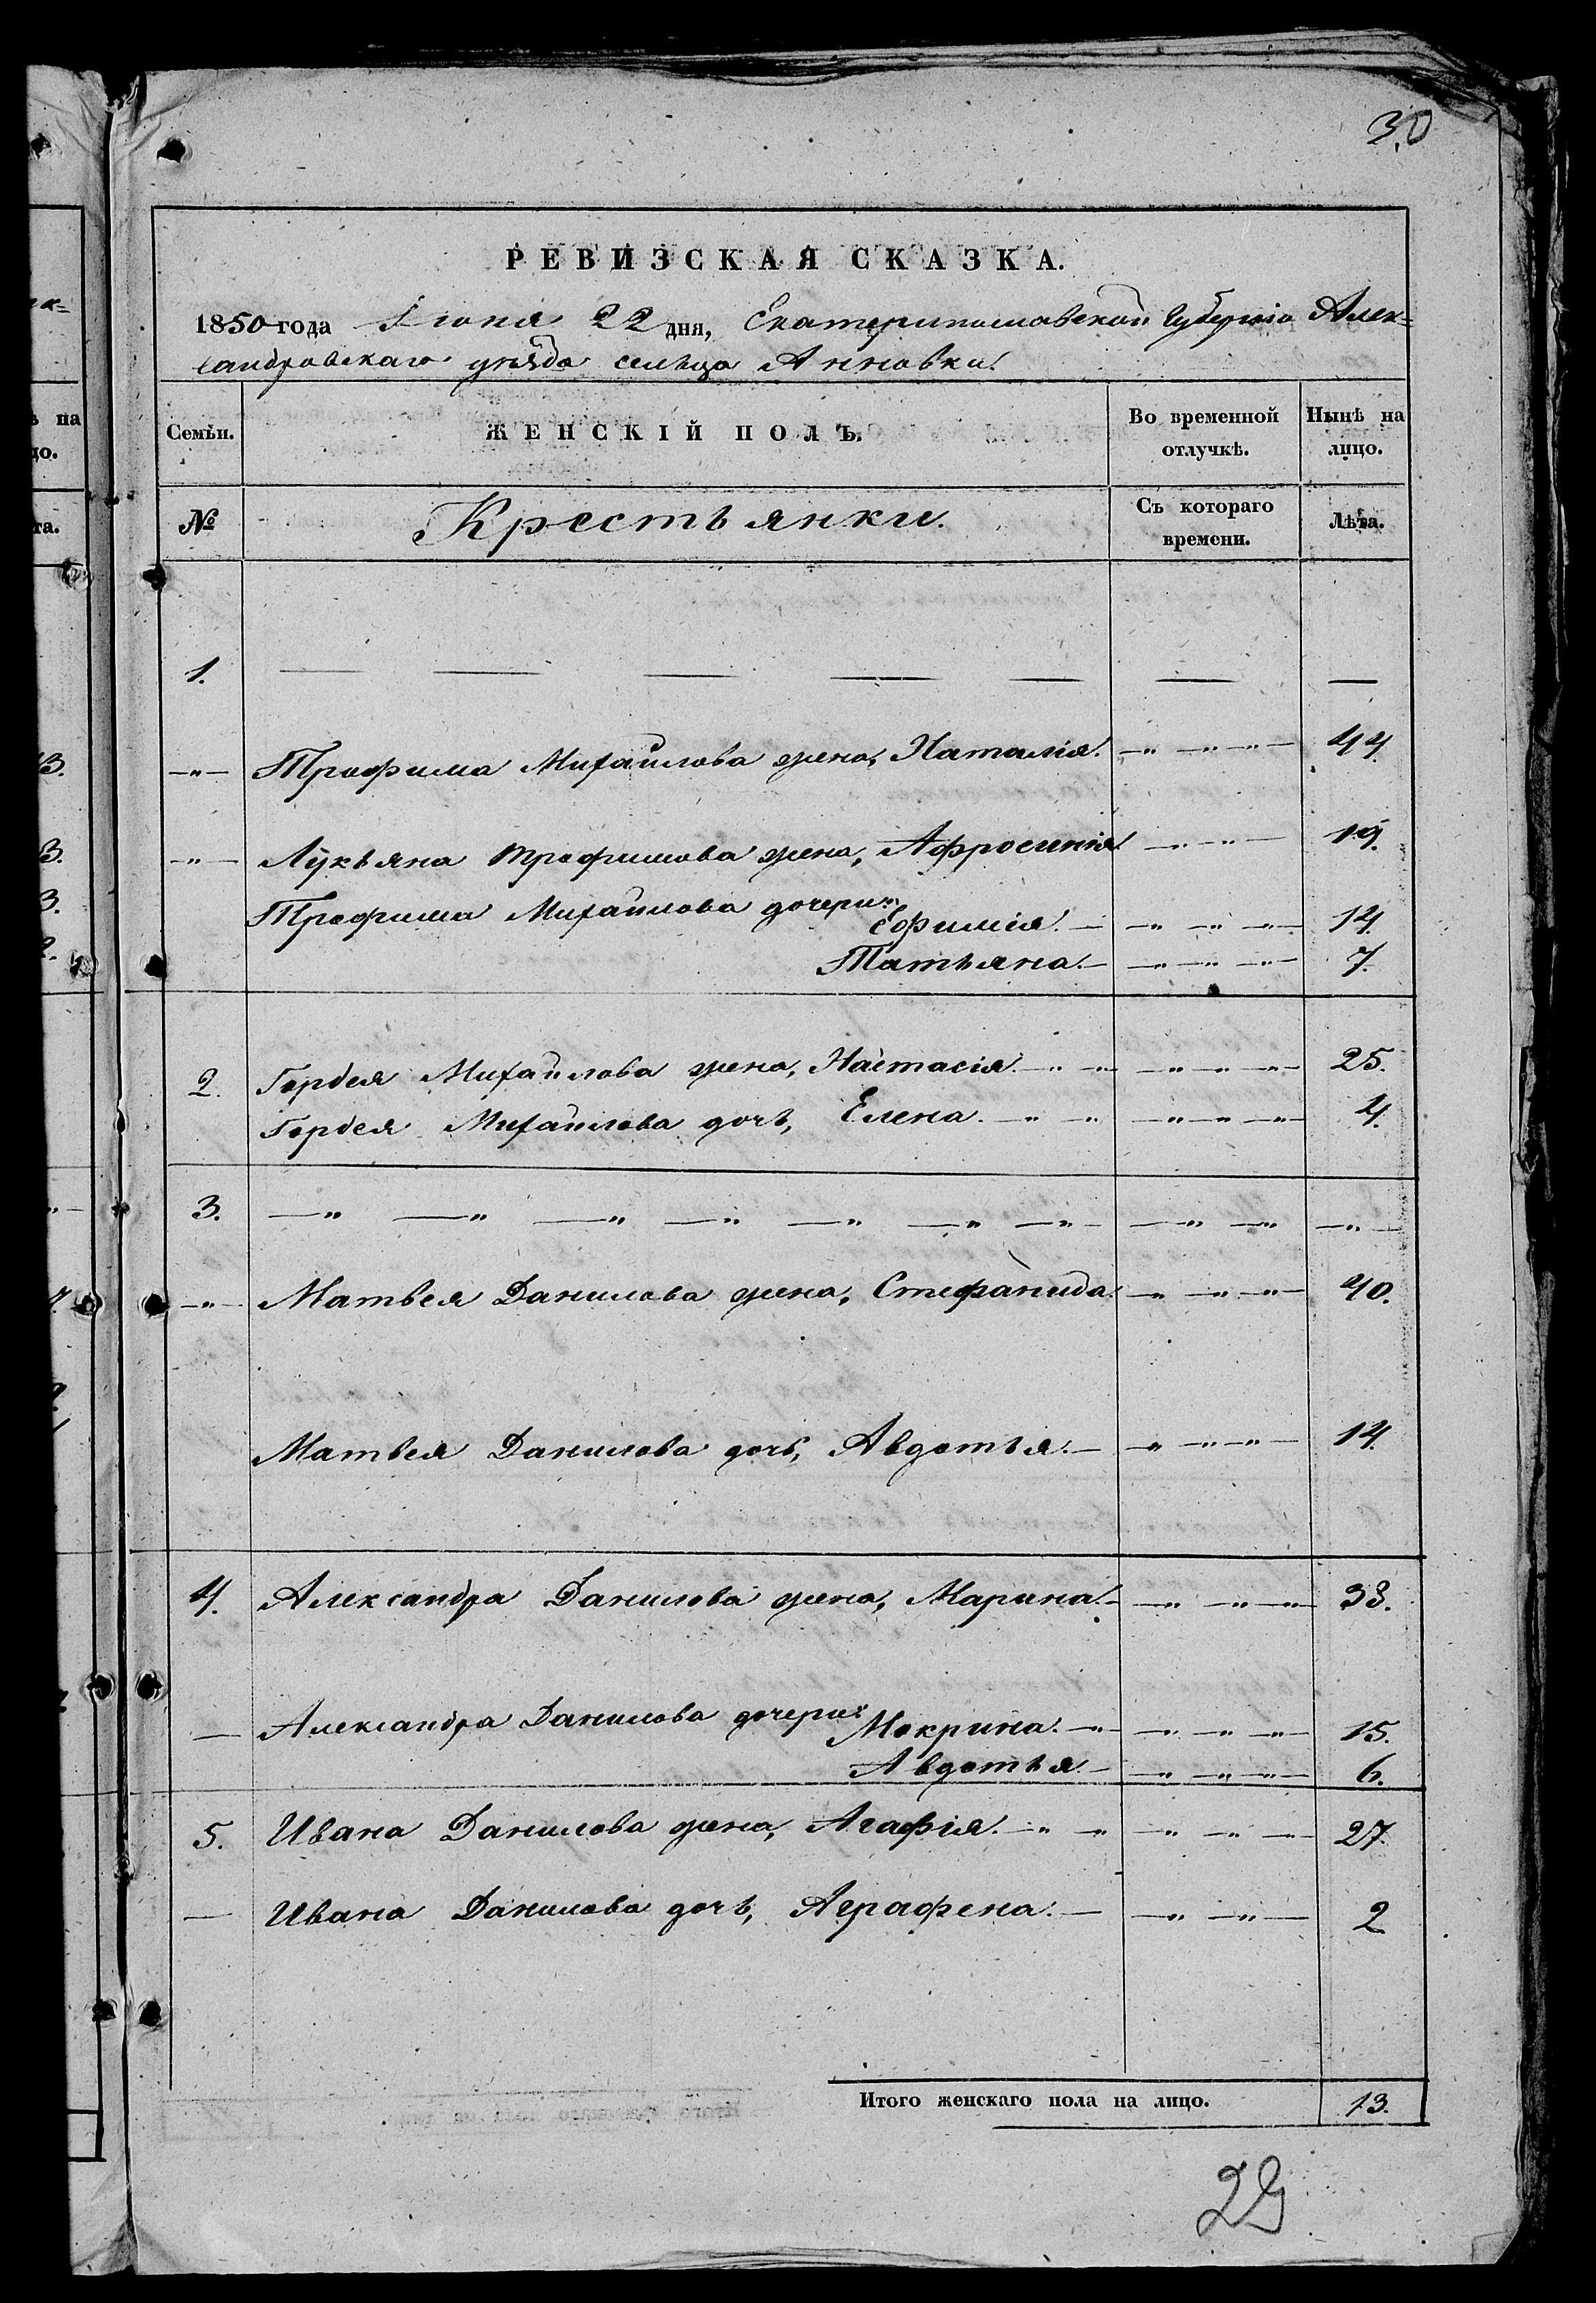 30
РЕВИЗСКАЯ СКАЗКА.
1850 года Іюня 22 дня, Екатеринославской Губерніи Алек-
сандровскаго уѣзда сельца Анновки.
Семьи.
ЖЕНСКІЙ ПОЛЪ.
Во временной отлучкѣ.
Нынѣ на лицо.
№
Крестьянки.
Съ котораго времени.
Лѣта.
1. — — — — — — —
—„— Трофима Михайлова жена, Наталія. —„—„—„— 44.
—„— Лукьяна Трофимова жена, Афросинія —„—„— 19.
Трофима Михайлова дочери:
Ефимія. — —„—„—„— 14.
Татьяна. — —„—„—„— 7.
2. Гордея Михайлова жена, Настасія. —„—„—„—„—„— 25.
Гордея Михайлова дочь, Елена. —„—„—„—„—„— 4.
3. —„—„—„—„—„—„—„— —„—„ —„—
—„— Матвея Данилова жена, Стефанида. —„—„—„— 40.
Матвея Данилова дочь, Авдотья. — —„—„—„— 14.
4. Александра Данилова жена, Марина. — —„—„—„— 38.
— Александра Данилова дочери:
Мокрина. —„—„—„—„— 15.
Авдотья. — —„—„—„— 6.
5. Ивана Данилова жена, Агафія. —„—„—„—„—„— 27.
— Ивана Данилова дочь, Аграфена. — —„—„— 2
Итого женскаго пола на лицо. 13.
29
на
до.
та.